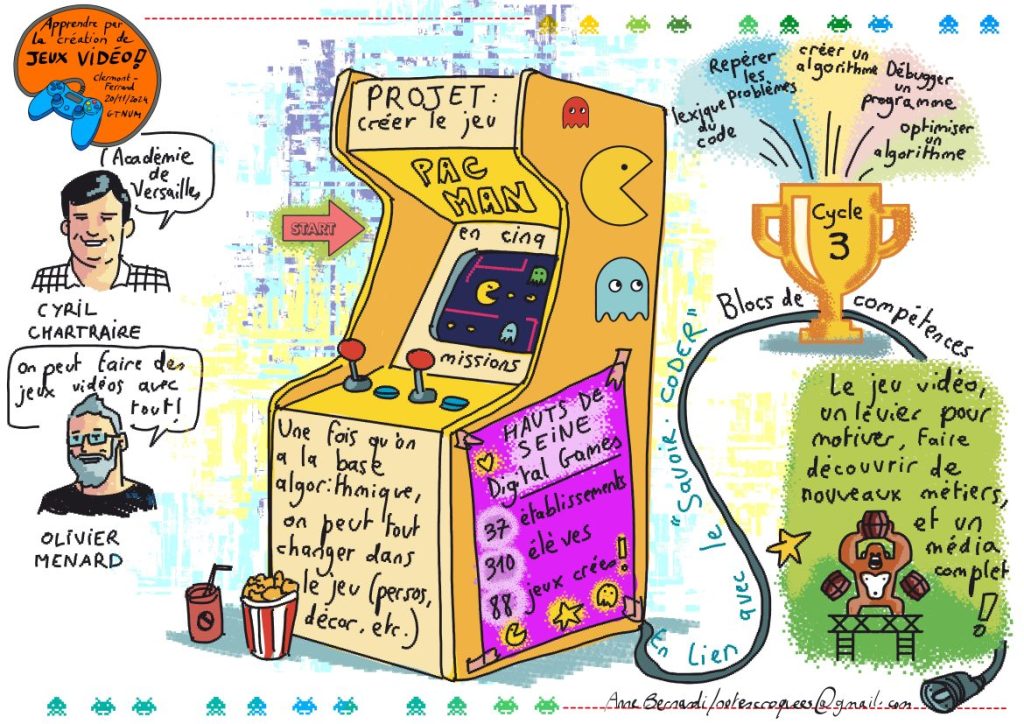 Apprendre par
la création de
JEUX VIDÉO!
Clermont-
Ferrand
20/11/2024
GTNUM
(Académie
de
Versailles
CYRIL
CHARTRAIRE
on peut faire des
jeux vidéos avec
tout!
OLIVIER
MENARD
PROJET:
créer le jeu
PAC
MAN
en cinq
missions
START
Une fois qu'on
a la base
algorithmique,
on peut tout
changer dans
le jeu (persos,
décor, etc.)
HAUTS DE
SEINE
Digital Games
37 établissements
310 élèves
88 jeux créés!
En lien avec le "Savoir CODER"
lexique
du
code
Repérer
les
problèmes
créer un
algorithme
Débugger
un
programme
optimiser
un
algorithme
Cycle
3
Blocs de compétences
Le jeu vidéo,
un lévier pour
motiver, faire
découvrir de
nouveaux métiers,
et un
média
complet
!
Anne Bernardi/notescroquees@gmail.com